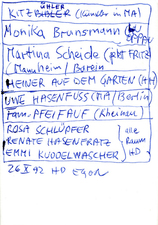 ÜHLER
KITZBÜHLER (Künstler in MA)
Monika Brunsmann (LU
OPPAU
Martina Scheide (jetzt FRITZ)
Mannheim / Berlin
HEINER AUF DEM GARTEN (HH)
UWE HASENFUSS (MA/Berlin)
Fam. PFEIFAUF (Rheinau)
ROSA SCHLÜPFER
RENATE HASENFRATZ
EMMI KUDDELWASCHER
alle
Raum
HD
26 X 92 HD Egon